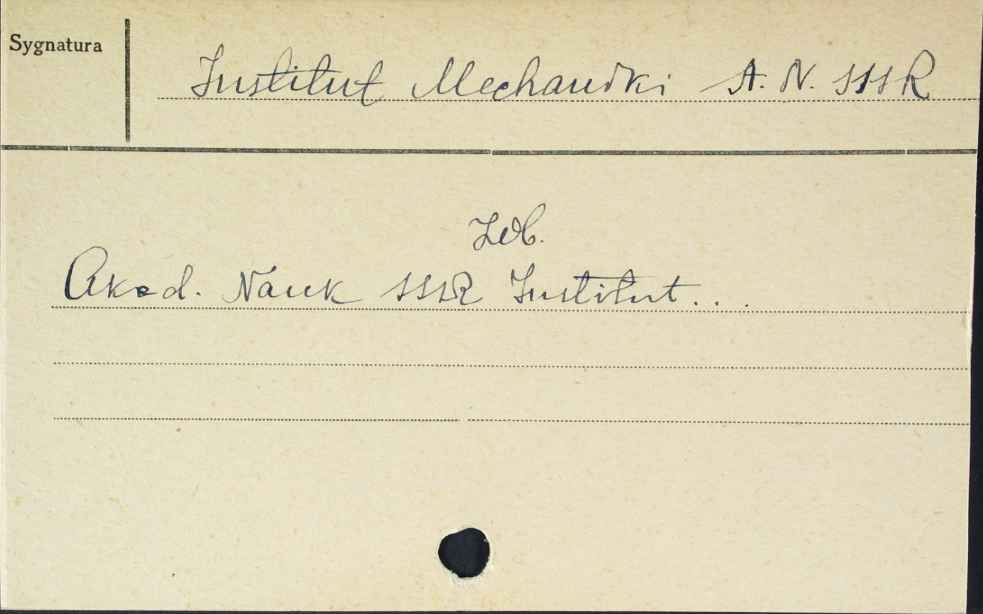 Sygnatura
Institut Mechaniki A. N. SSSR
Zob.
Akad. Nauk SSSR Institut...